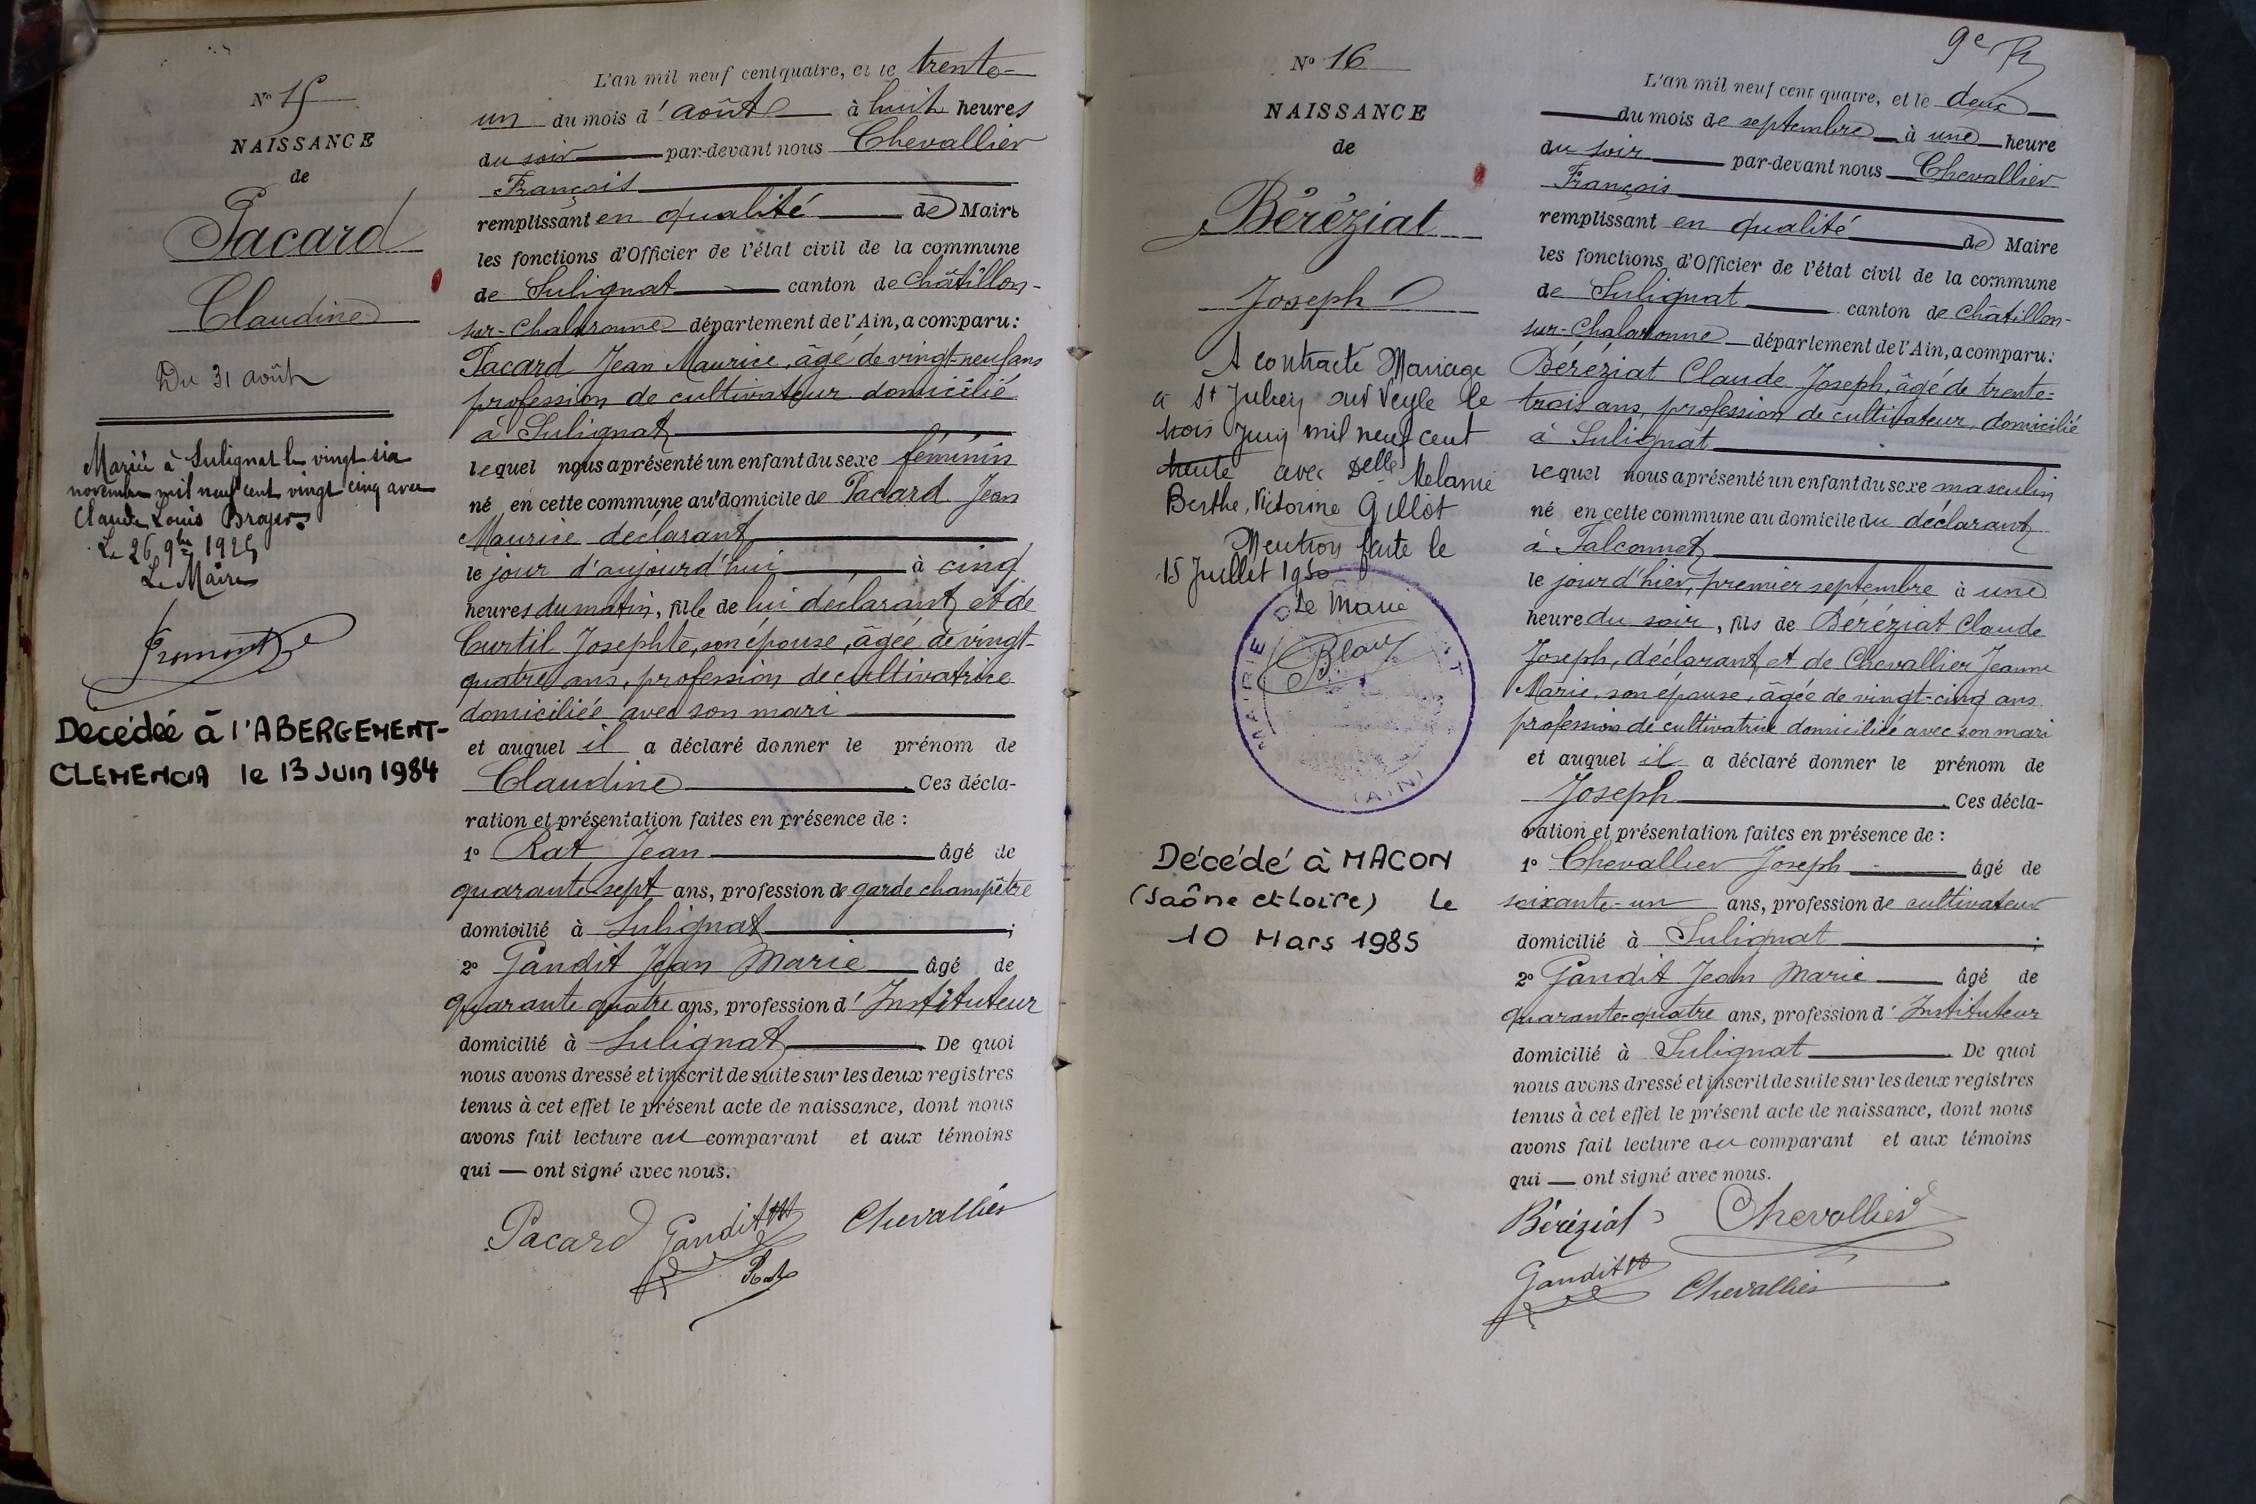 Nº 15
NAISSANCE
de
Pacard
Claudine
Du 31 août
Mariée à Sulignat le vingt six
novembre mil neuf cent vingt cinq avec
Claude Louis Broyer
Le 26 9bre 1925
Le Maire
Décédée à l'ABERGEMENT-
CLEMENCIA le 13 Juin 1984
L'an mil neuf cent quatre, et le trente-
un du mois d'août à huit heures
du soir par-devant nous Chevallier
François
remplissant en qualité de Maire
les fonctions d'Officier de l'état civil de la commune
de Sulignat canton de Châtillon-
sur-Chalaronne département de l'Ain, a comparu:
Pacard Jean Maurice, âgé de vingt-neuf ans
profession de cultivateur domicilié
à Sulignat
lequel nous a présenté un enfant du sexe féminin
né en cette commune au domicile de Pacard Jean
Maurice déclarant
le jour d'aujourd'hui à cinq
heures du matin, fille de lui déclarant et de
Curtil Josephte, son épouse, âgée de vingt-
quatre ans, profession de cultivatrice
domiciliée avec son mari
et auquel il a déclaré donner le prénom de
Claudine. Ces décla-
ration et présentation faites en présence de :
1º Rat Jean âgé de
quarante-sept ans, profession de garde champêtre
domicilié à Sulignat ;
2º Gandit Jean Marie âgé de
quarante quatre ans, profession d'Instituteur
domicilié à Sulignat. De quoi
nous avons dressé et inscrit de suite sur les deux registres
tenus à cet effet le présent acte de naissance, dont nous
avons fait lecture au comparant et aux témoins
qui — ont signé avec nous.
Pacard Gandit Chevallier
Rat
9e
Nº 16
NAISSANCE
de
Béréziat
Joseph
A contracté Mariage
à St Julien sur Veyle le
trois Juin mil neuf cent
trente avec Delle Melanie
Berthe, Victorine Gillot
Mention faite le
15 Juillet 1930
Le Maire
MAIRIE DE
(AIN)
Décédé à MACON
(Saône et Loire) le
10 Mars 1985
L'an mil neuf cent quatre, et le deux
du mois de septembre à une heure
du soir par-devant nous Chevallier
François
remplissant en qualité de Maire
les fonctions d'Officier de l'état civil de la commune
de Sulignat canton de Châtillon-
sur-Chalaronne département de l'Ain, a comparu:
Béréziat Claude Joseph, âgé de trente-
trois ans, profession de cultivateur, domicilié
à Sulignat
lequel nous a présenté un enfant du sexe masculin
né en cette commune au domicile du déclarant
à Falconnet
le jour d'hier, premier septembre à une
heure du soir, fils de Béréziat Claude
Joseph, déclarant et de Chevallier Jeanne
Marie, son épouse, âgée de vingt-cinq ans
profession de cultivatrice domiciliée avec son mari
et auquel il a déclaré donner le prénom de
Joseph. Ces décla-
ration et présentation faites en présence de :
1º Chevallier Joseph âgé de
soixante-un ans, profession de cultivateur
domicilié à Sulignat ;
2º Gandit Jean Marie âgé de
quarante-quatre ans, profession d'Instituteur
domicilié à Sulignat. De quoi
nous avons dressé et inscrit de suite sur les deux registres
tenus à cet effet le présent acte de naissance, dont nous
avons fait lecture au comparant et aux témoins
qui — ont signé avec nous.
Béréziat Chevallier
Gandit Chevallier